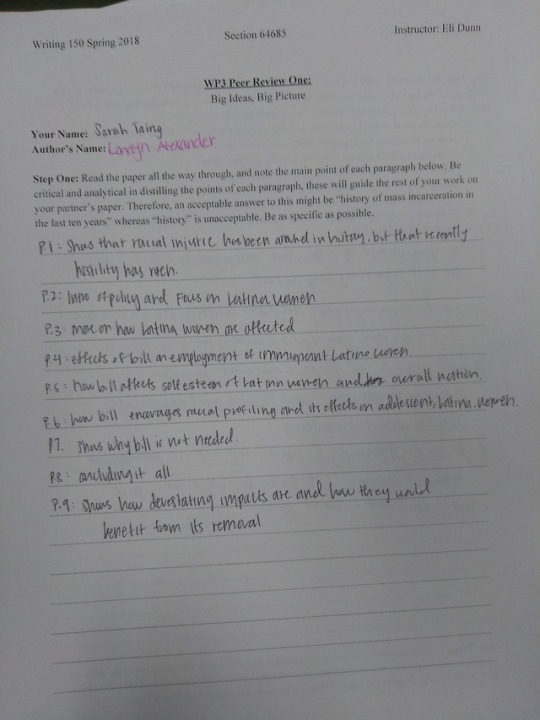 Writing 150 Spring 2018
Section 64685
Instructor: Eli Dunn
WP3 Peer Review One:
Big Ideas, Big Picture
Your Name: Sarah Taing
Author's Name: Landyn Alexander
Step One: Read the paper all the way through, and note the main point of each paragraph below. Be
critical and analytical in distilling the points of each paragraph, these will guide the rest of your work on
your partner's paper. Therefore, an acceptable answer to this might be "history of mass incarceration in
the last ten years" whereas "history" is unacceptable. Be as specific as possible.
P.1: Shows that racial injustice has been around in history, but that recently
hostility has
P.2: Intro of policy and Focus on Latina women
P.3: more on how Latina women are affected
P4: effects of bill on employment of immigrant Latina women
P.5: how bill affects self esteem of Latina women and overall nation.
P.6: how bill encourages racial profiling and its effects on adolescent, Latina, women.
P7. Shows why bill is not needed.
P.8: concluding it all
P.9: Shows how devestating impacts are and how they would
benefit from its removal